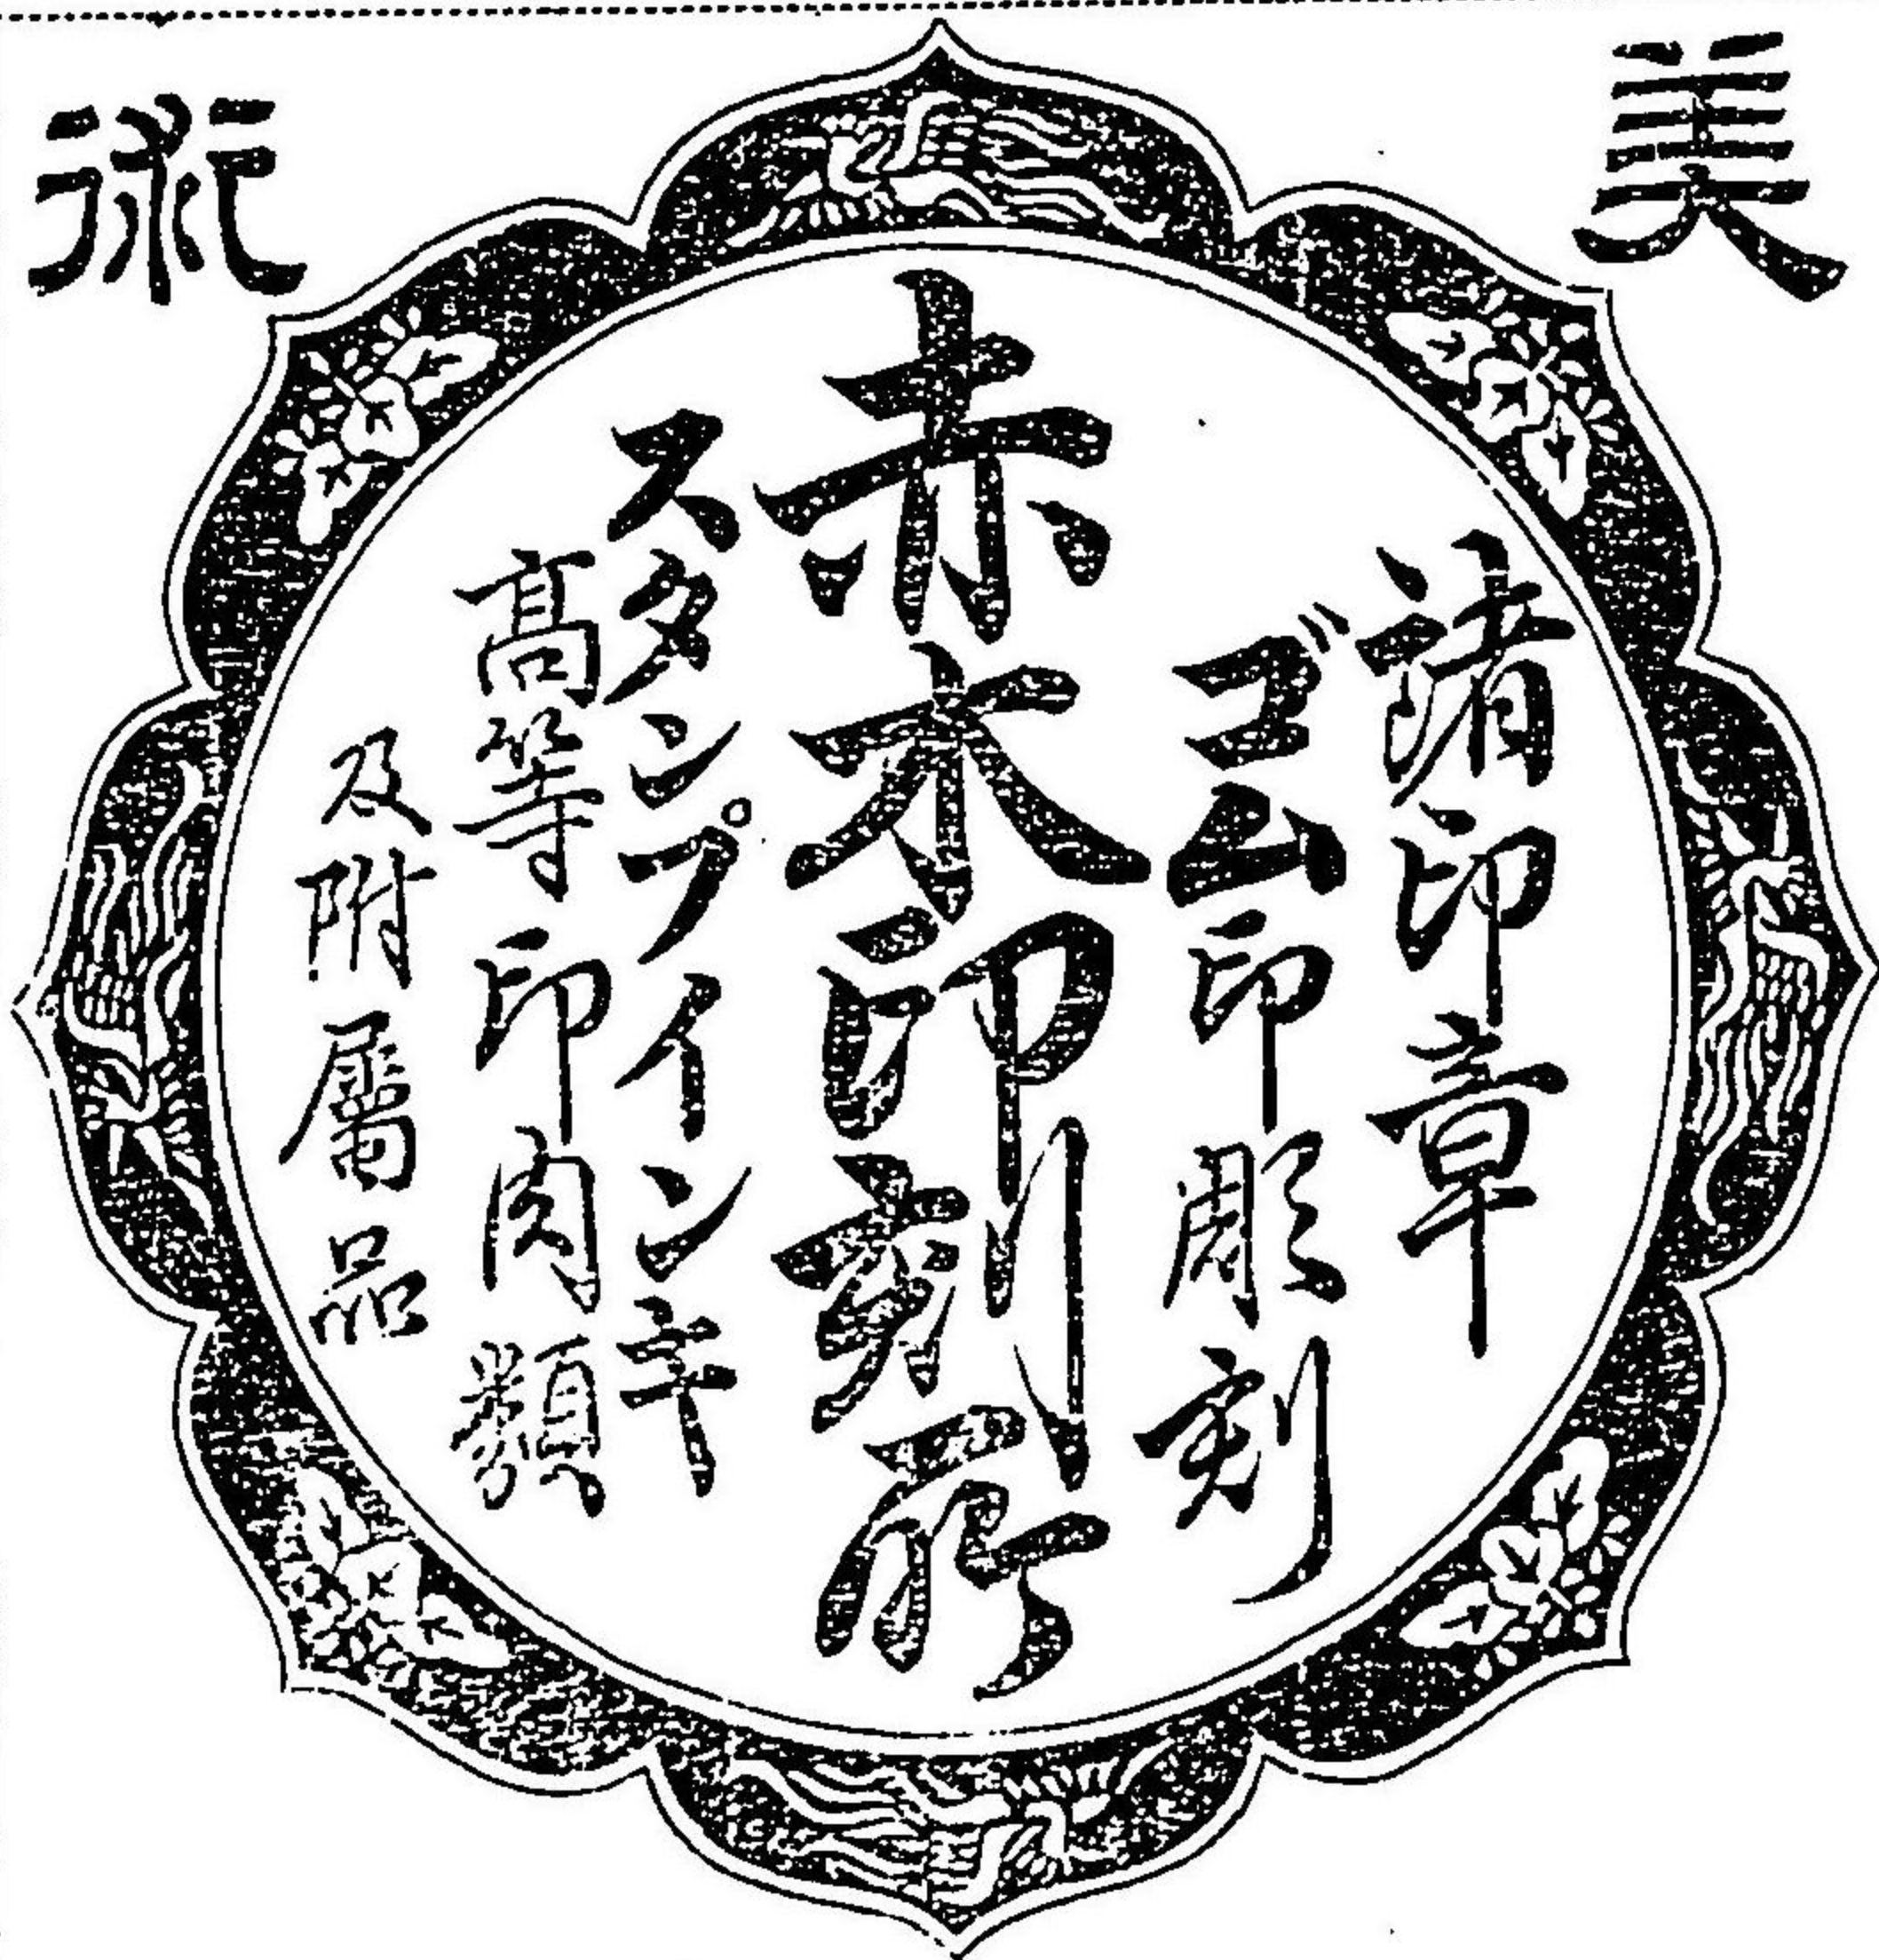 美術
諸印章
ゴム印彫刻
赤木印刻所
スタンプインキ
高等印肉類
及附属品